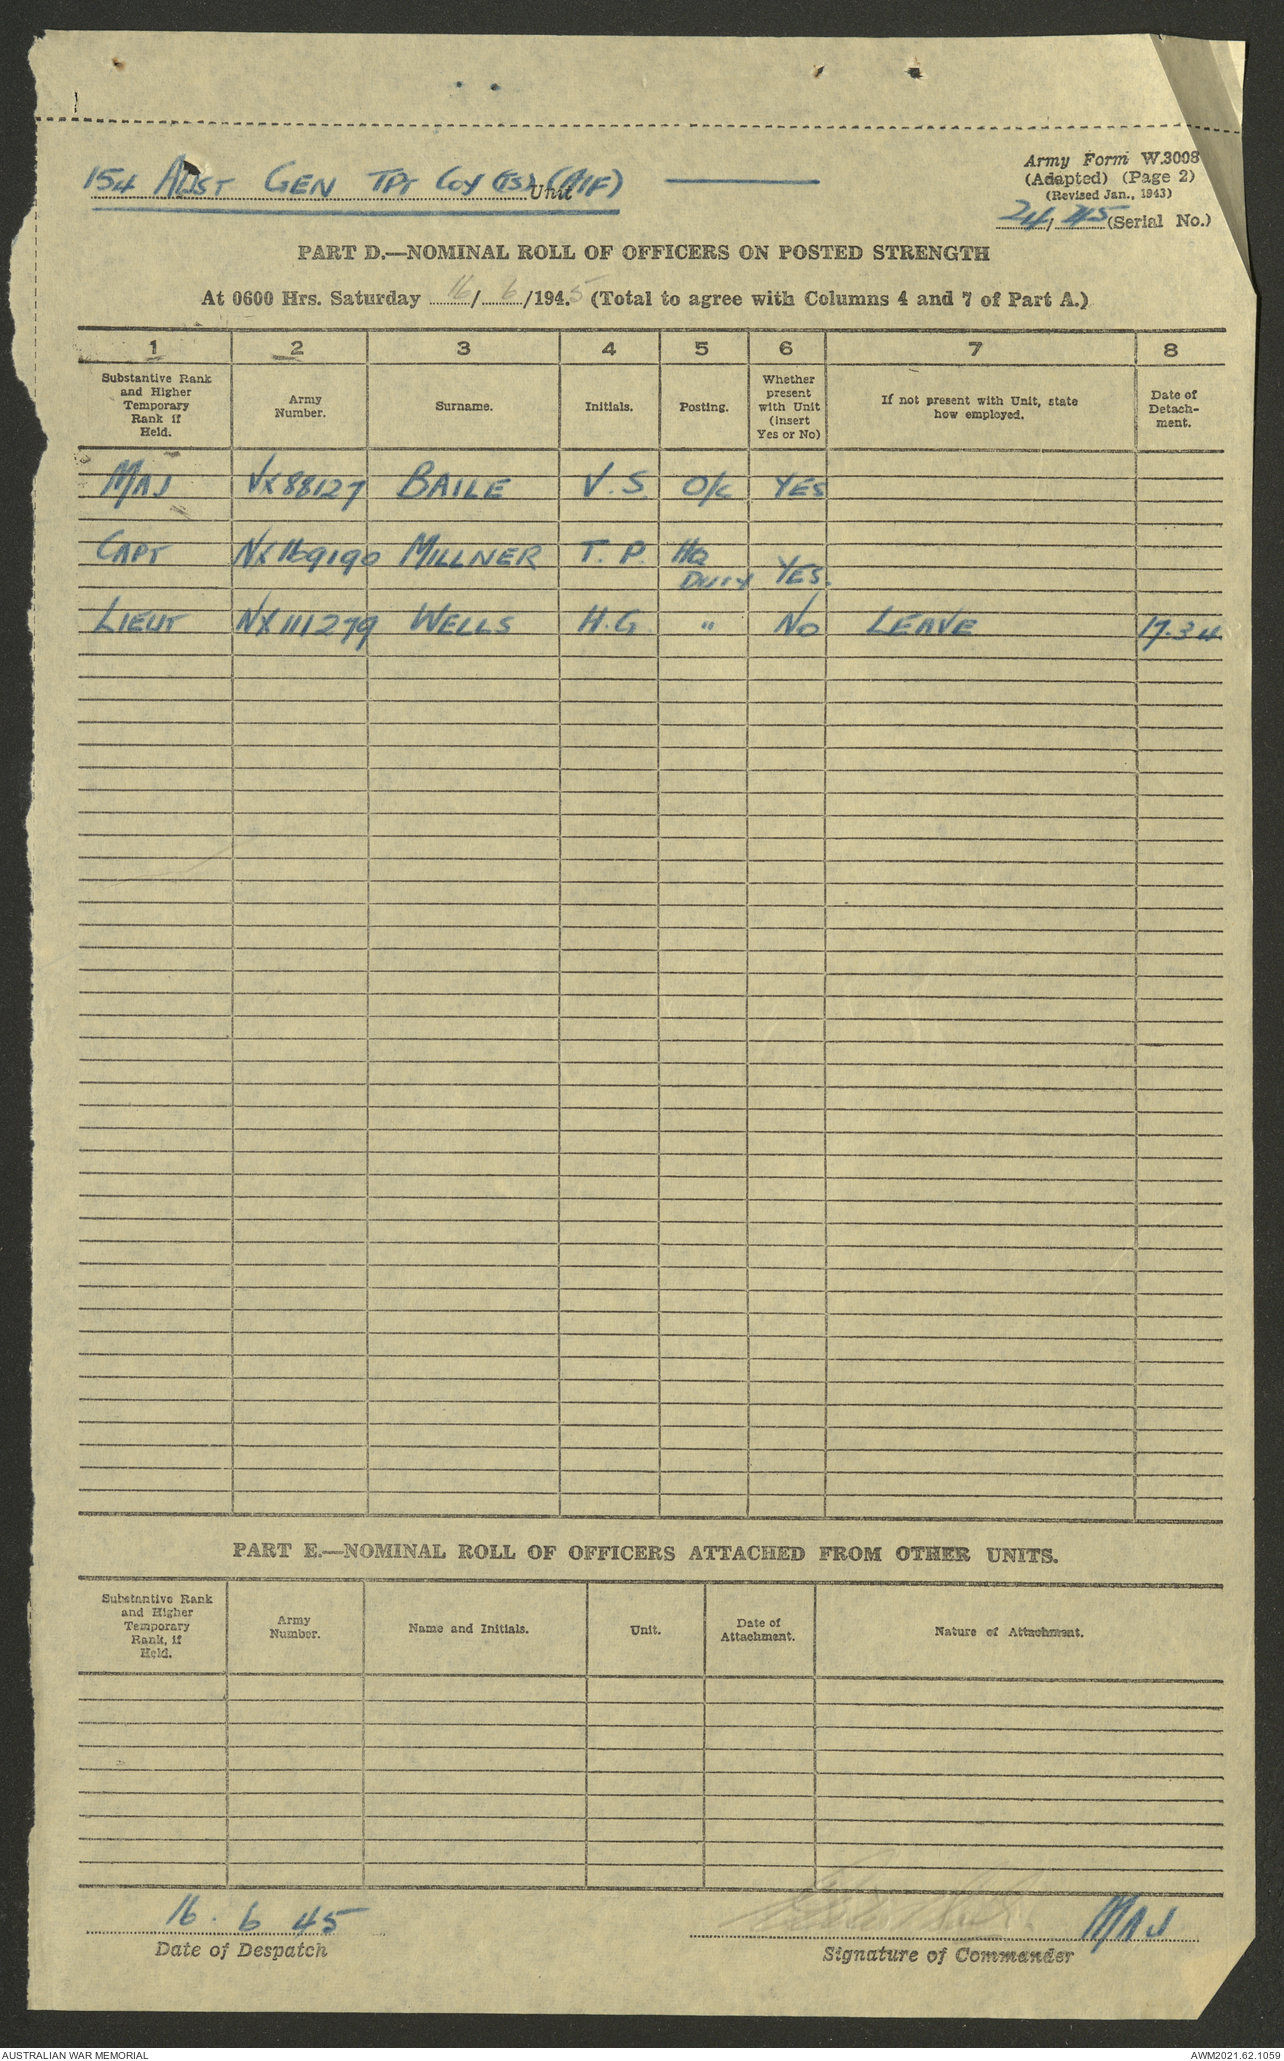 154 AUST GEN TPT COY (TS) (AIF) Unit
Army Form W.3008
(Adapted) (Page 2)
(Revised Jan., 1943)
24/45 (Serial No.)
PART D.—NOMINAL ROLL OF OFFICERS ON POSTED STRENGTH
At 0600 Hrs. Saturday 16/6/1945 (Total to agree with Columns 4 and 7 of Part A.)
1 2 3 4 5 6 7 8
Substantive Rank and Higher Temporary Rank if Held. Army Number. Surname. Initials. Posting. Whether present with Unit (insert Yes or No) If not present with Unit, state how employed. Date of Detach-ment.
MAJ VX88127 BAILE V.S. O/C YES
CAPT NX169190 MILLNER T.P. HQ Duty YES.
LIEUT NX111279 WELLS H.G. " NO LEAVE
PART E.—NOMINAL ROLL OF OFFICERS ATTACHED FROM OTHER UNITS.
Substantive Rank and Higher Temporary Rank, if Held. Army Number. Name and Initials. Unit. Date of Attachment. Nature of Attachment.
16.6 45 MAJ
Date of Despatch Signature of Commander
AUSTRALIAN WAR MEMORIAL AWM2021.62.1059